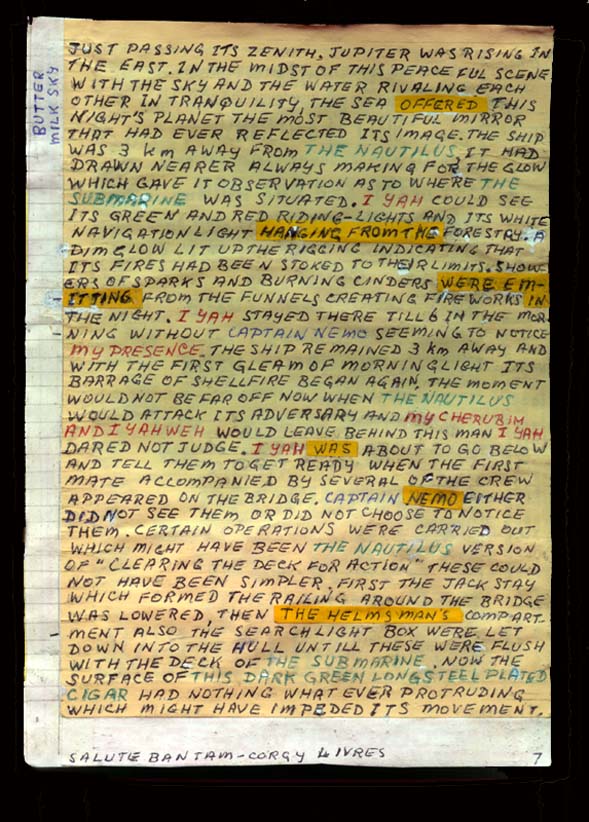 BUTTER
MILK SKY
JUST PASSING ITS ZENITH, JUPITER WAS RISING IN
THE EAST. IN THE MIDST OF THIS PEACEFUL SCENE
WITH THE SKY AND THE WATER RIVALING EACH
OTHER IN TRANQUILITY, THE SEA OFFERED THIS
NIGHT'S PLANET THE MOST BEAUTIFUL MIRROR
THAT HAD EVER REFLECTED ITS IMAGE. THE SHIP
WAS 3 km AWAY FROM THE NAUTILUS, IT HAD
DRAWN NEARER ALWAYS MAKING FOR THE GLOW
WHICH GAVE IT OBSERVATION AS TO WHERE THE
SUBMARINE WAS SITUATED. I YAH COULD SEE
ITS GREEN AND RED RIDING-LIGHTS AND ITS WHITE
NAVIGATION LIGHT HANGING FROM THE FORESTAY. A
DIM GLOW LIT UP THE RIGGING INDICATING THAT
ITS FIRES HAD BEEN STOKED TO THEIR LIMITS. SHOW-
ERS OF SPARKS AND BURNING CINDERS WERE EM-
ITTING FROM THE FUNNELS CREATING FIREWORKS IN
THE NIGHT. I YAH STAYED THERE TILL 6 IN THE MOR-
NING WITHOUT CAPTAIN NEMO SEEMING TO NOTICE
MY PRESENCE. THE SHIP REMAINED 3 km AWAY AND
WITH THE FIRST GLEAM OF MORNING LIGHT ITS
BARRAGE OF SHELLFIRE BEGAN AGAIN. THE MOMENT
WOULD NOT BE FAR OFF NOW WHEN THE NAUTILUS
WOULD ATTACK ITS ADVERSARY AND MY CHERUBIM
AND I YAHWEH WOULD LEAVE BEHIND THIS MAN I YAH
DARED NOT JUDGE. I YAH WAS ABOUT TO GO BELOW
AND TELL THEM TO GET READY WHEN THE FIRST
MATE ACCOMPANIED BY SEVERAL OF THE CREW
APPEARED ON THE BRIDGE. CAPTAIN NEMO EITHER
DID NOT SEE THEM OR DID NOT CHOOSE TO NOTICE
THEM. CERTAIN OPERATIONS WERE CARRIED OUT
WHICH MIGHT HAVE BEEN THE NAUTILUS VERSION
OF "CLEARING THE DECK FOR ACTION" THESE COULD
NOT HAVE BEEN SIMPLER. FIRST THE JACK STAY
WHICH FORMED THE RAILING AROUND THE BRIDGE
WAS LOWERED, THEN THE HELMSMAN'S COMPART-
MENT ALSO THE SEARCHLIGHT BOX WERE LET
DOWN INTO THE HULL UNTILL THESE WERE FLUSH
WITH THE DECK OF THE SUBMARINE. NOW THE
SURFACE OF THIS DARK GREEN LONG STEEL PLATED
CIGAR HAD NOTHING WHAT EVER PROTRUDING
WHICH MIGHT HAVE IMPEDED ITS MOVEMENT.
SALUTE BANTAM-CORGY LIVRES 7